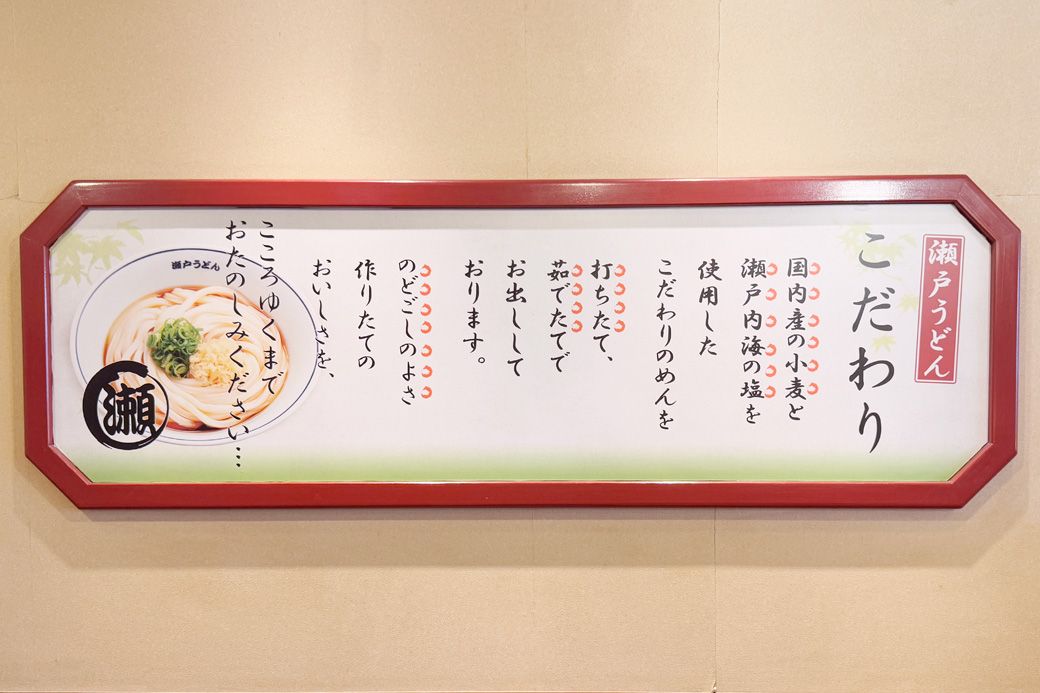 瀬戸うどん
こだわり
国内産の小麦と
瀬戸内海の塩を
使用した
こだわりのめんを
打ちたて、
茹でたてで
お出しして
おります。
のどごしのよさ
作りたての
おいしさを、
こころゆくまで
おたのしみください…
瀬戸うどん
瀬